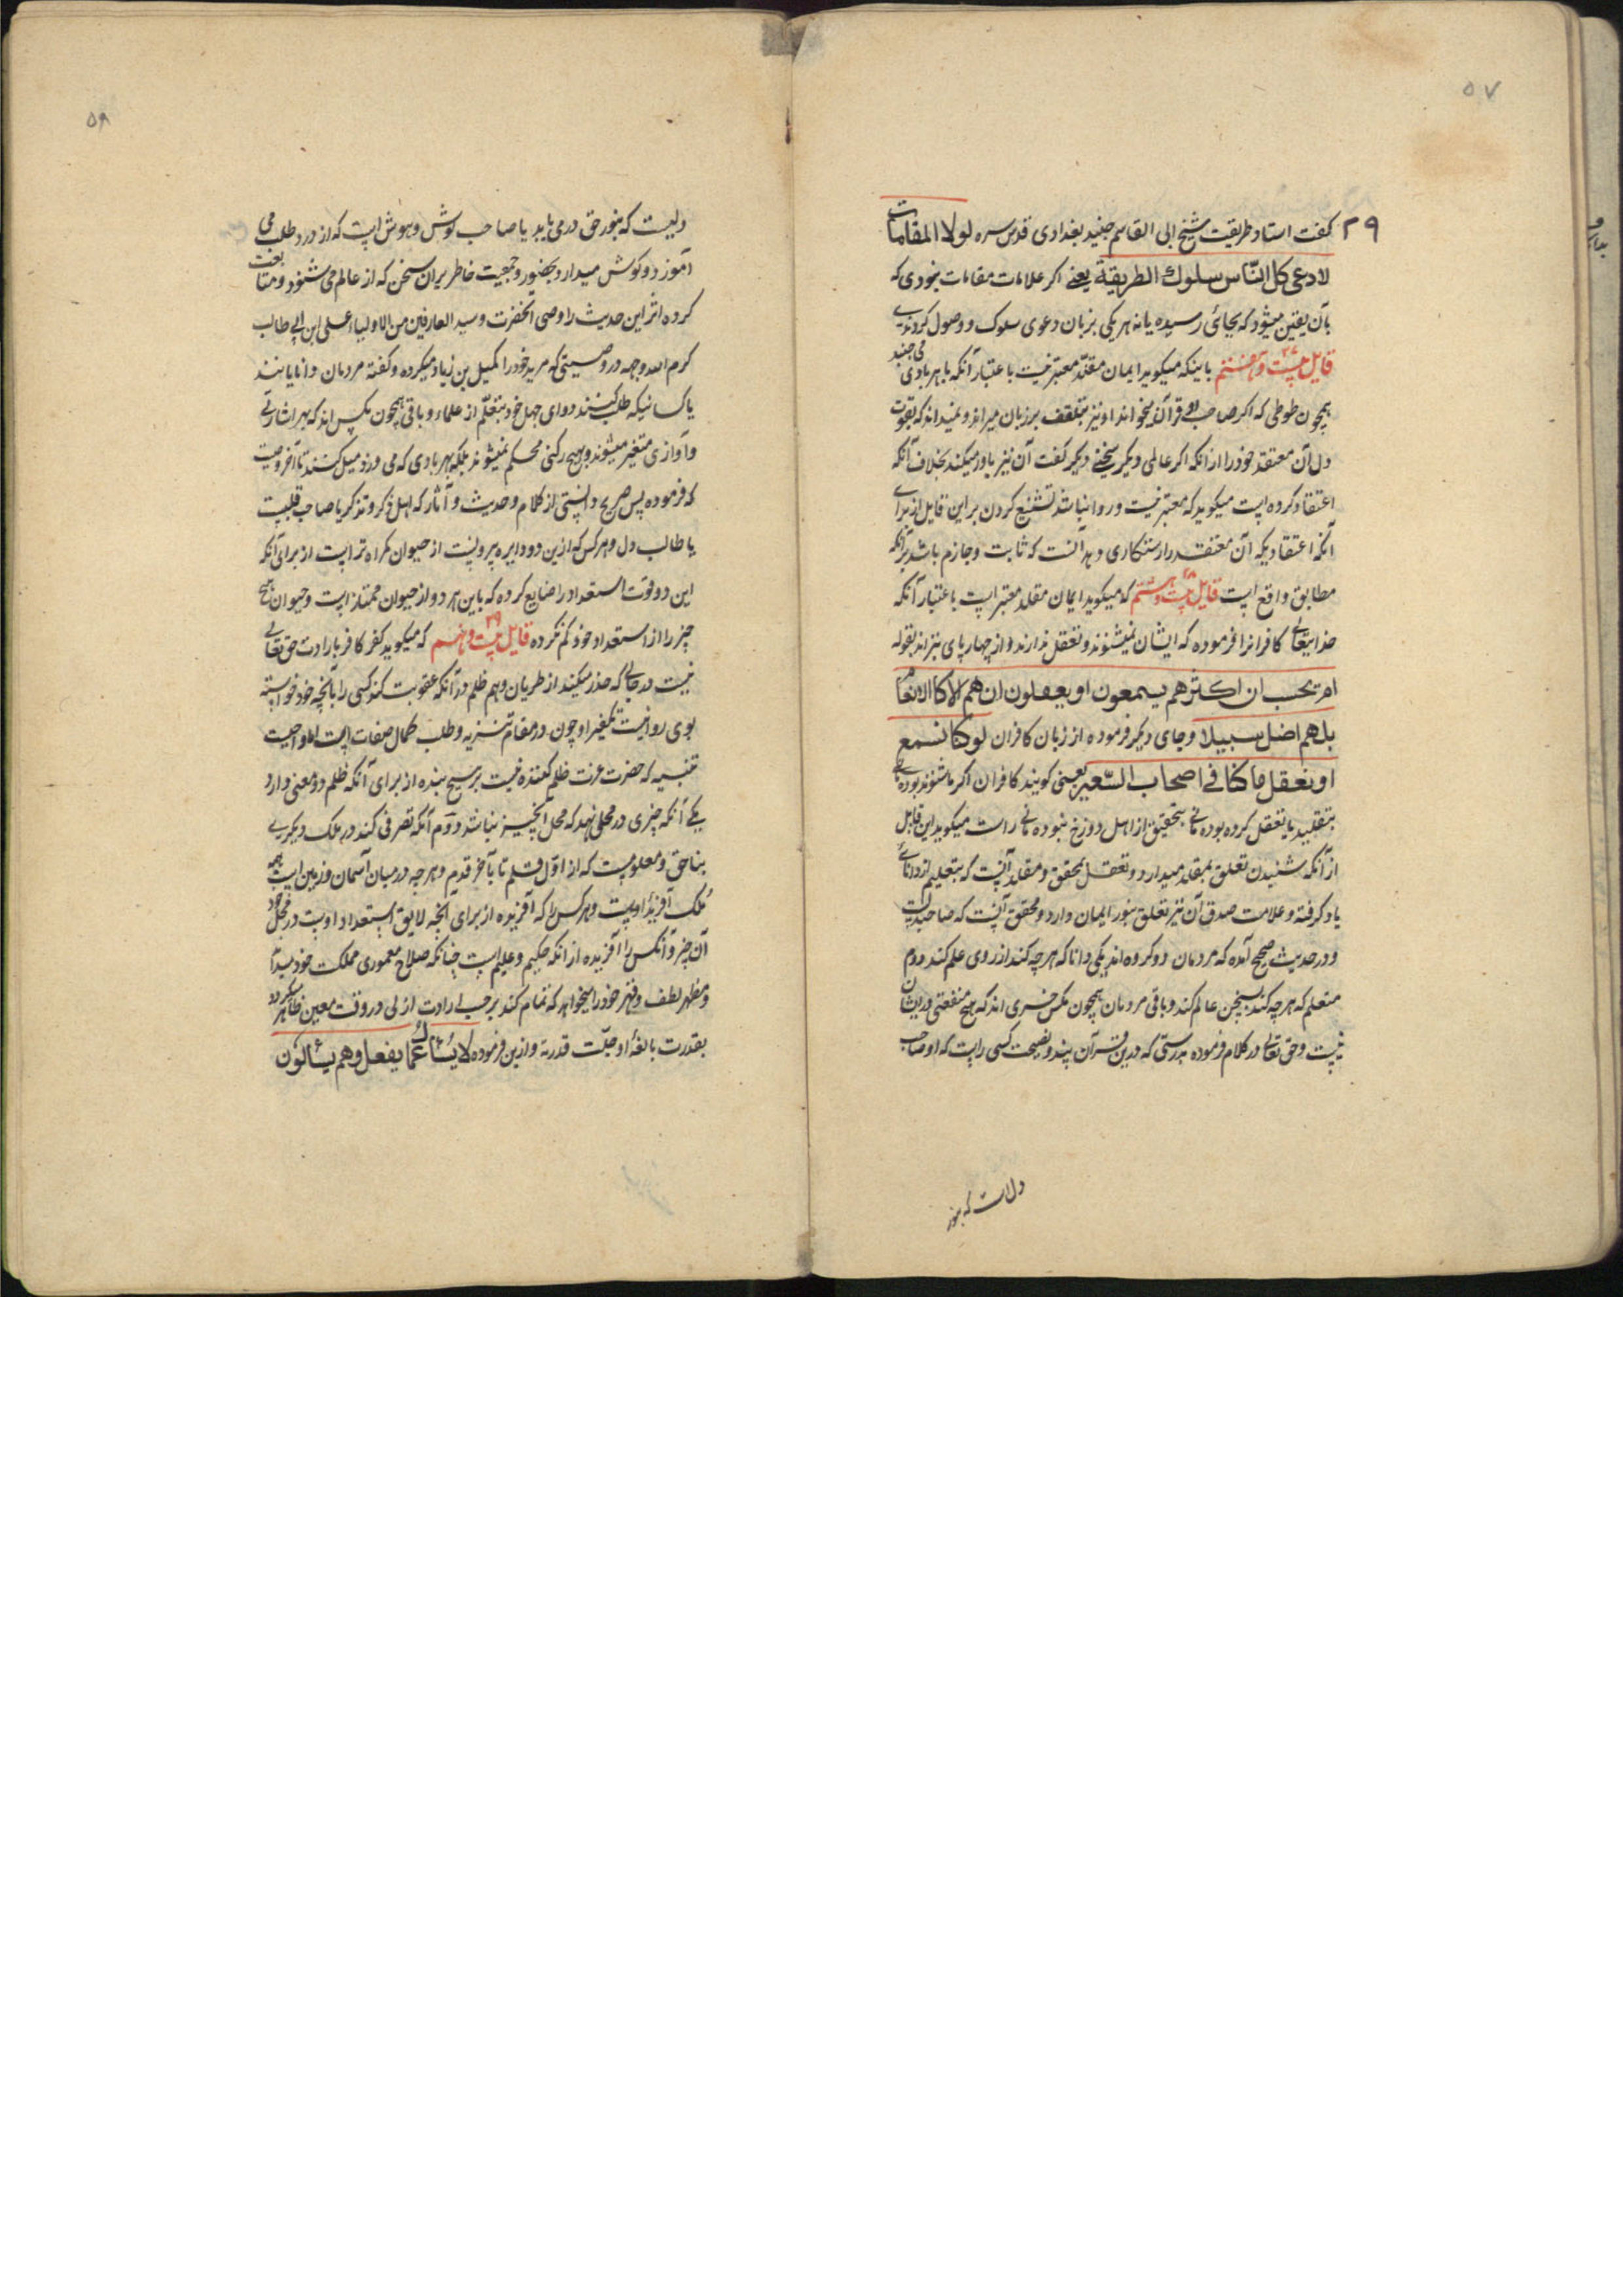 ۵۷
۲۹
گفت استاد طریقت شیخ ابی القاسم جنید بغدادی قدس سره لولا المقامات
لادعی کل الناس سلوك الطریقة یعنی اکر علامات مقامات نبودی که
بآن یقین میشود که بجائی رسیده یا نه هر یکی بزبان دعوی سلوک و وصول کردندی
قایل بیست وهفتم ۲۷ باینکه میکوید ایمان مقلد معتبر نیست باعتبار آنکه با هر بادی می جنبد
همچون طوطی که اکر صاحب وی قرآن میخواند او نیز بتلقف بر زبان میراند و نمیداند که بقوت
دل آن معتقد خود را از انکه اکر عالمی دیکر سخنی دیکر گفت آن نیز باور میکند بخلاف آنکه
اعتقاد کرده است میکوید که معتبر نیست و روا نباشد تشنیع کردن بر این قایل از برای
آنکه اعتقادیکه آن معتقد را رستکاری دهد آنست که ثابت و جازم باشد بر آنکه
مطابق واقع است قایل بیست وهشتم ۲۸ که میکوید ایمان مقلد معتبر است باعتبار آنکه
خدایتعالی کافرانرا فرموده که ایشان نمیشنوند و تعقل ندارند و از چهارپای بترند بقوله
ام تحسب ان اکثرهم یسمعون او یعقلون ان هم الا کالانعام
بل هم اضل سبیلا و جای دیکر فرموده از زبان کافران لو کنا نسمع
او نعقل ما کنا فی اصحاب السعیر یعنی کویند کافران اکر ما شنوند بودمانی
بتقلید یا تعقل کرده بودمانی بتحقیق از اهل دوزخ نبودمانی راست میکوید این قایل
از آنکه شنیدن تعلق بمقلد میدارد و تعقل بمحقق و مقلد آنست که بتعلیم از دانائی
یاد کرفته و علامت صدق آن نیز تعلق بنور ایمان دارد و محقق آنست که صاحبدلست
و در حدیث صحیح آمده که مردمان دو کروه اند یکی دانا که هر چه کند از روی علم کند دوم
متعلم که هر چه کند بسخن عالم کند و باقی مردمان همچون مکس خری اند که هیچ منفعتی در ایشان
نیست و حق تعالی در کلام فرموده بدرستی که درین قرآن پند و نصیحت کسی راست که او صاحب
دلاست که بنور
۵۸
دلیست که بنور حق درمی یابد یا صاحب کوش و هوش است که از درد طلب می
آموزد و کوش میدارد بحضور و جمعیت خاطر بران سخن که از عالم می شنود و متابعت
کرده اثر این حدیث را وصی آنحضرت و سید العارفین من الاولیاء علی ابن ابی طالب
کرم الله وجهه در وصیتی که مرید خود را کمیل بن زیاد میکرده و کفته مردمان دانایانند
یا کسانیکه طلب کنند دوای جهل خود بتعلم از علماء و باقی همچون مکس اند که بهر اشارتی
و آوازی متغیر میشوند و بهیچ رکنی محکم نمیشوند بلکه بهر بادی که می وزد میل کنند تا آخر وصیت
که فرموده پس صریح دانستی از کلام و حدیث و آثار که اهل ذکر و تذکر یا صاحب قلبیست
یا طالب دل و هر کس که ازین دو دایره بیرونست از حیوان کمراه تر است از برای آنکه
این دو قوت استعداد را ضایع کرده که باین هر دو از حیوان ممتاز است و حیوان هیچ
چیز را از استعداد خود کم نکرده قایل بیست ونهم ۲۹ که میکوید کفر کافر بارادت حق تعالی
نیست در حالی که حذر میکند از طریان وهم ظلم در آنکه عقوبت کند کسی را بآنچه خود خواسته
بوی روا نیست تکفیر او چون در مقام تنزیه و طلب کمال صفات است اما واجبست
تنبیه که حضرت عزت ظلم کننده نیست بر هیچ بنده از برای آنکه ظلم دو معنی دارد
یکی آنکه چیزی در محلی نهد که محل آنچیز نباشد دوم آنکه تصرفی کند در ملک دیکری
بناحق و معلومست که از اول قلم تا بآخر قدم و هر چه در میان آسمان و زمین است همه
ملک آفریدۀ اوست و هر کس را که آفریده از برای آنچه لایق استعداد اوست در محل خود
آن چیز و آنکس را آفریده از انکه حکیم و علیم است چنانکه صلاح معموری مملکت خود میداند
و مظهر لطف و قهر خود را میخواهد که تمام کند بر حسب ارادت ازلی در وقت معین ظاهر کرده
بقدرت بالغۀ او جلت قدرته و ازین فرموده لا یسئال عما یفعل وهم یسئالون